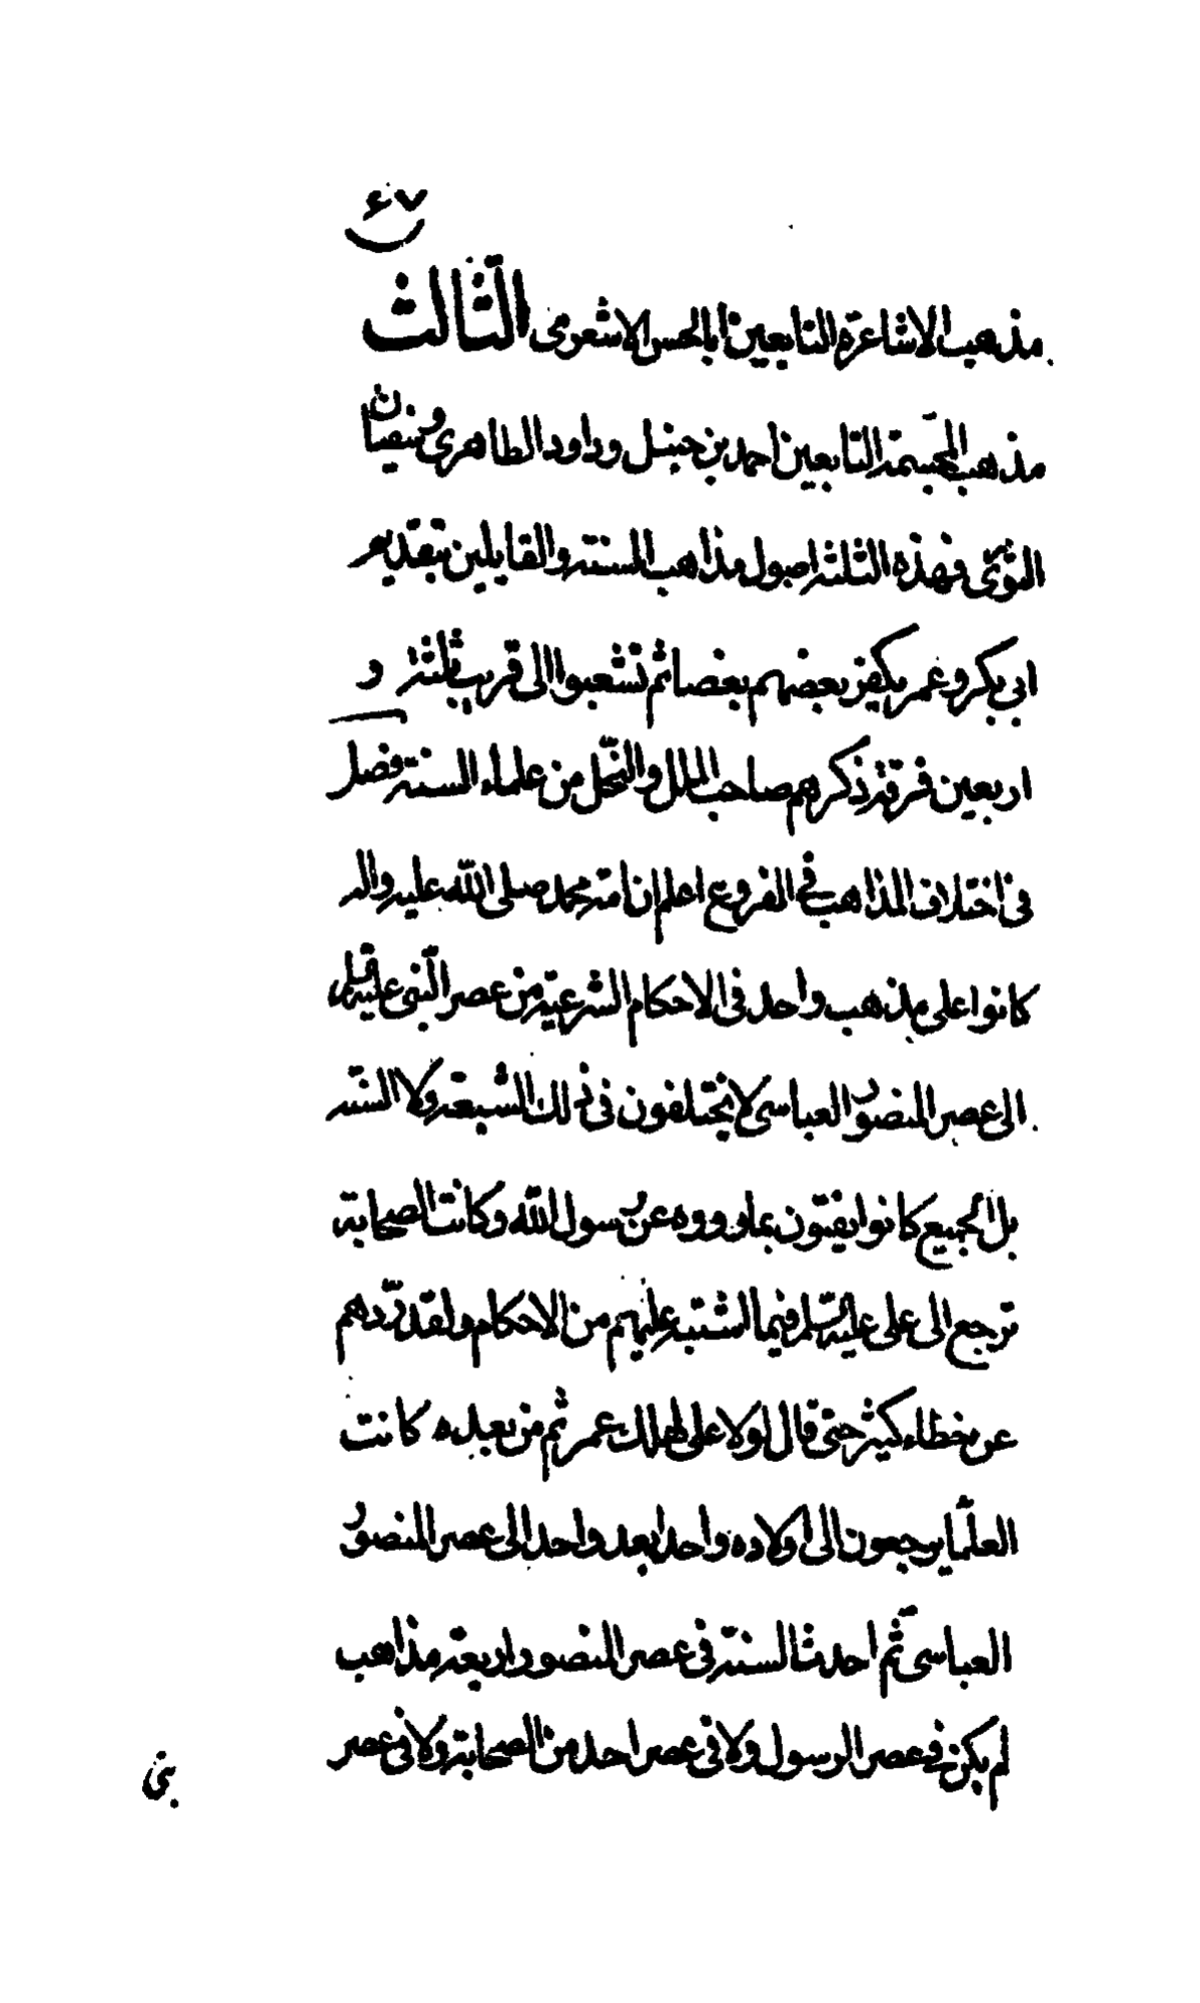 ٤٧
مذهب الاشاعرة التابعين ابا الحسن الاشعرى الثالث
مذهب المجسمة التابعين احمد بن حنبل وداود الظاهرى وسفيان
الثورى فهذه الثلثة اصول مذاهب السنة والقايلين بتقديم
ابى بكر وعمر يكفر بعضهم بعضا ثم تشعبوا الى قريب ثلثة و
اربعين فرقة ذكرهم صاحب الملل والنحل من علماء السنة فصل
فى اختلاف المذاهب فى الفروع اعلم ان امة محمد صلى الله عليه واله
كانوا على مذهب واحد فى الاحكام الشرعية من عصر النبى عليه
الى عصر المنصور العباسى لا يختلفون فى ذلك الشيعة ولا السنة
بل الجميع كانوا يفتون بما رووه عن رسول الله وكانت الصحابة
ترجع الى على عليه السلم فيما اشتبه عليهم من الاحكام ولقد ردهم
عن خطاء كثير حتى قال لولا على لهلك عمر ثم من بعده كانت
العلما يرجعون الى اولاده واحدا بعد واحد الى عصر المنصور
العباسى ثم احدث السنة فى عصر المنصور اربعة مذاهب
لم يكن فى عصر الرسول ولا فى عصر احد من الصحابة ولا فى عصر
بنى